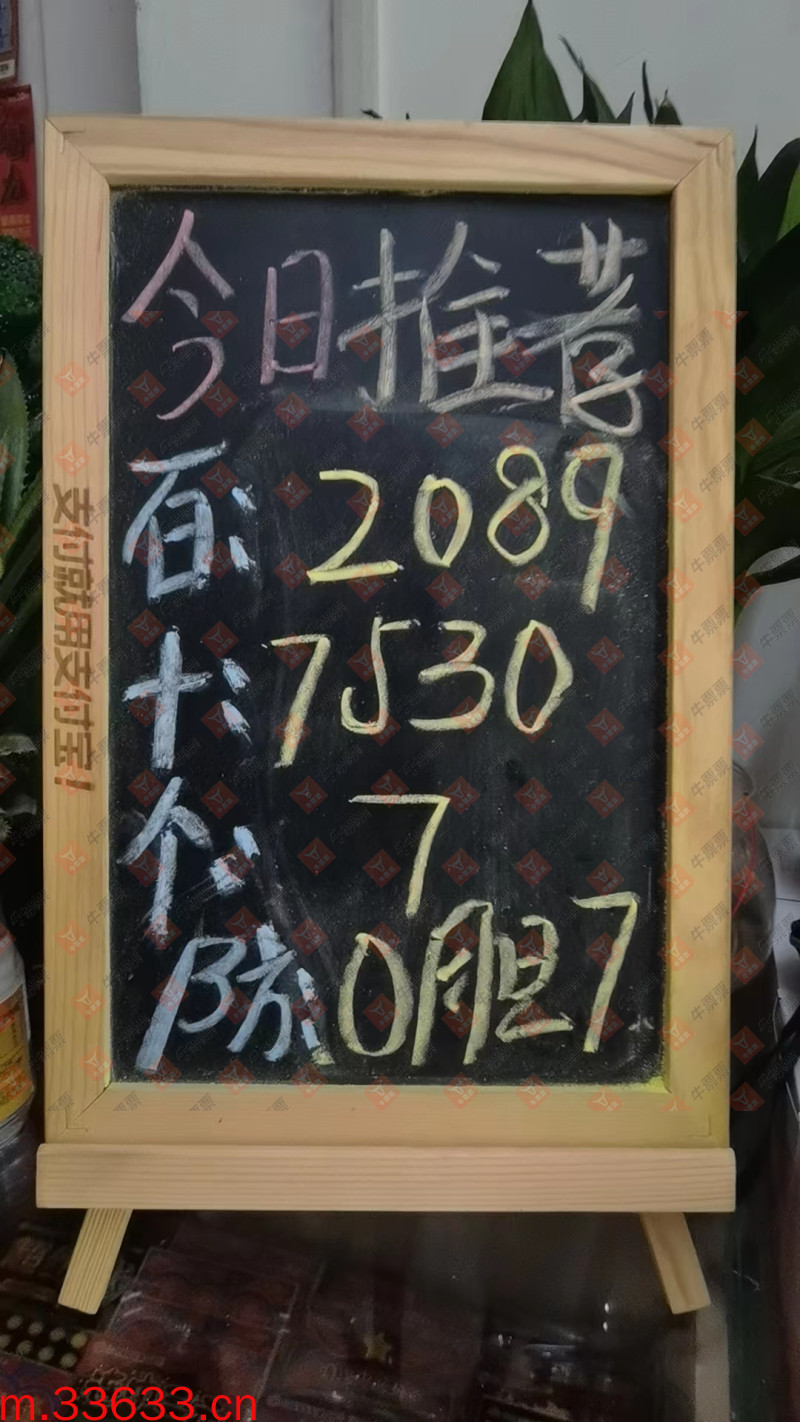 今日推荐
百:2089
十:7530
个:7
防:0胆7
支付就用支付宝!
m.33633.cn